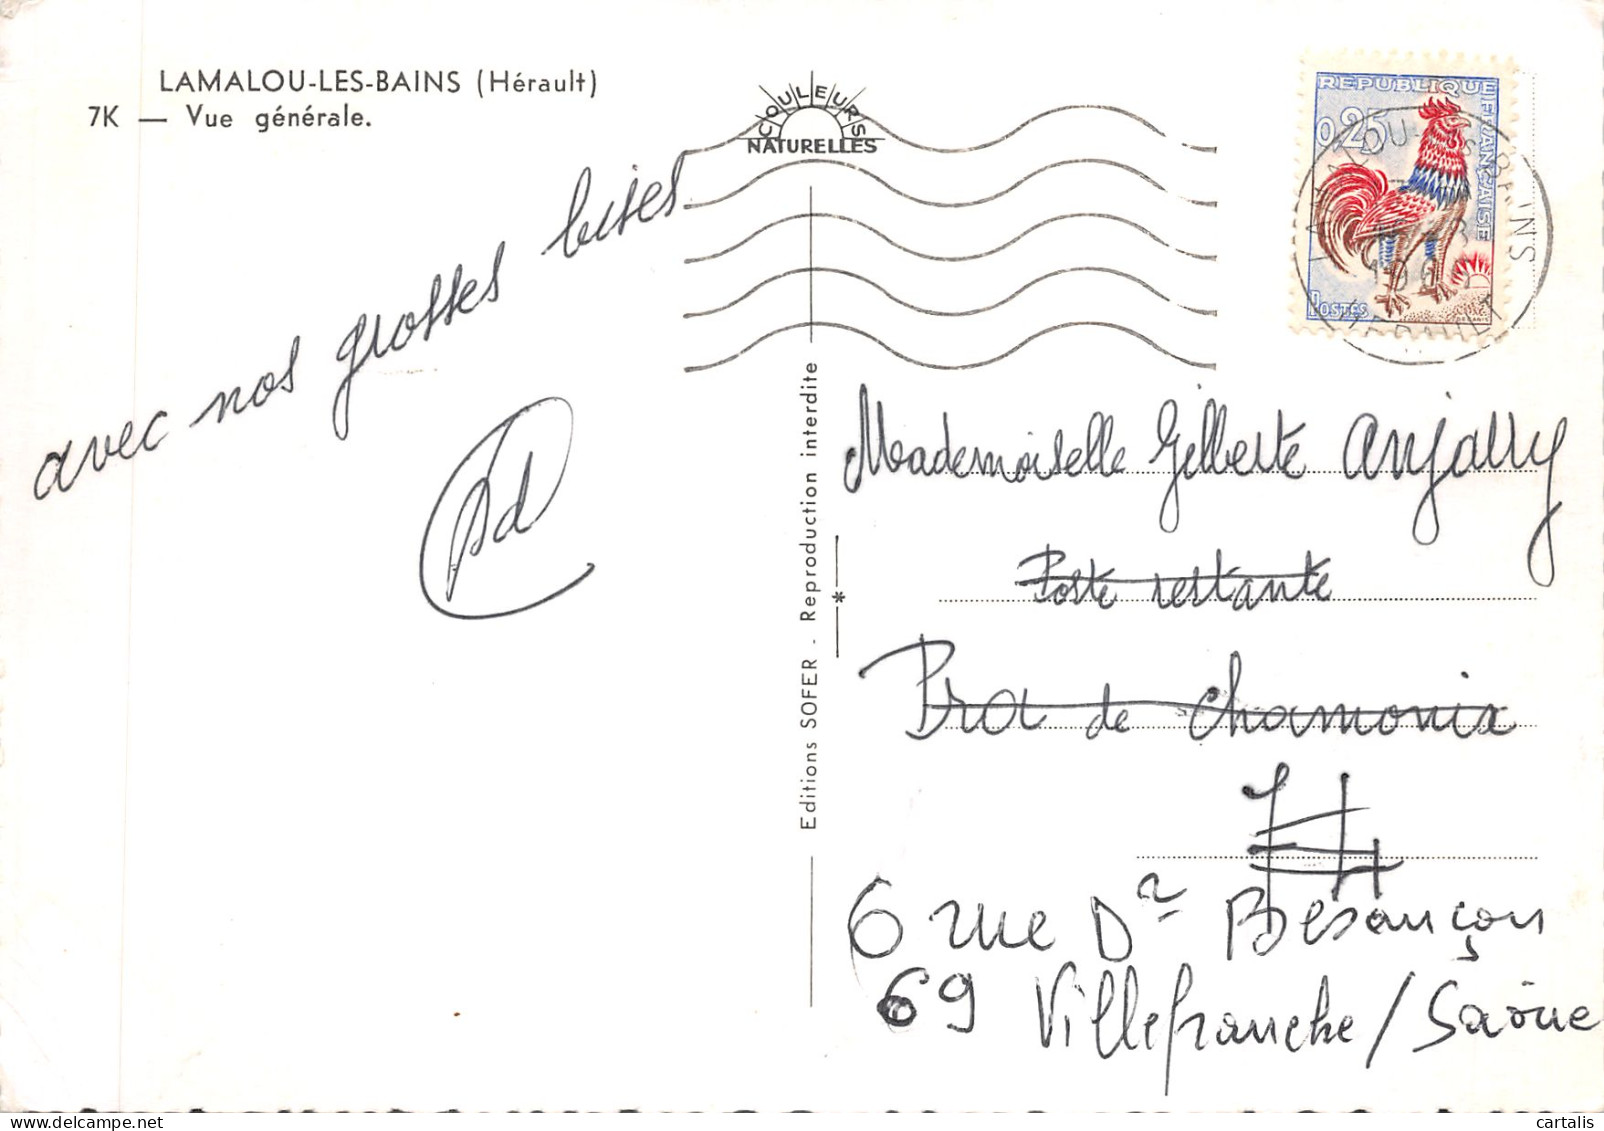 LAMALOU-LES-BAINS (Hérault)
7K — Vue générale.
COULEURS
NATURELLES
REPUBLIQUE FRANÇAISE
0,25
POSTES
avec nos grosses bises
Editions SOFER - Reproduction interdite
Mademoiselle Gilberte Anjalry
Poste restante
Praz de Chamonix
74
6 rue Dr Besançon
69 Villefranche/Saône
cartalis